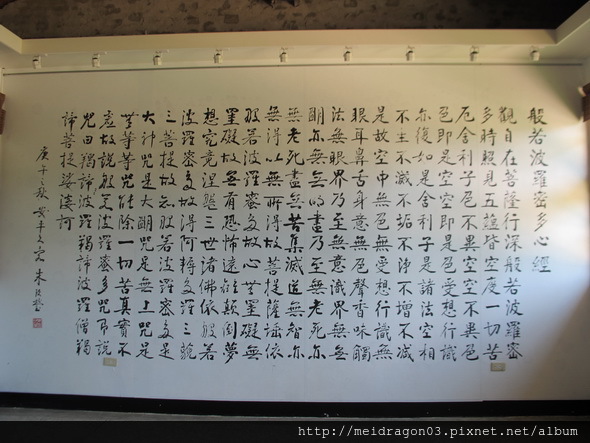 般若波羅密多心經
觀自在菩薩行深般若波羅密
多時照見五蘊皆空度一切苦
厄舍利子色不異空空不異色
色即是空空即是色受想行識
亦復如是舍利子是諸法空相
不生不滅不垢不淨不增不減
是故空中無色無受想行識無
眼耳鼻舌身意無色聲香味觸
法無眼界乃至無意識界無無
明亦無無明盡乃至無老死亦
無老死盡無苦集滅道無智亦
無得以無所得故菩提薩埵依
般若波羅密多故心無罣礙無
罣礙故無有恐怖遠離顛倒夢
想究竟涅槃三世諸佛依般若
波羅密多故得阿耨多羅三藐
三菩提故知般若波羅密多是
大神咒是大明咒是無上咒是
無等等咒能除一切苦真實不
虛故說般若波羅密多咒即說
咒曰羯諦波羅羯諦波羅僧羯
諦菩提娑婆訶
庚午秋 朱
http://meidragon03.pixnet.net/album